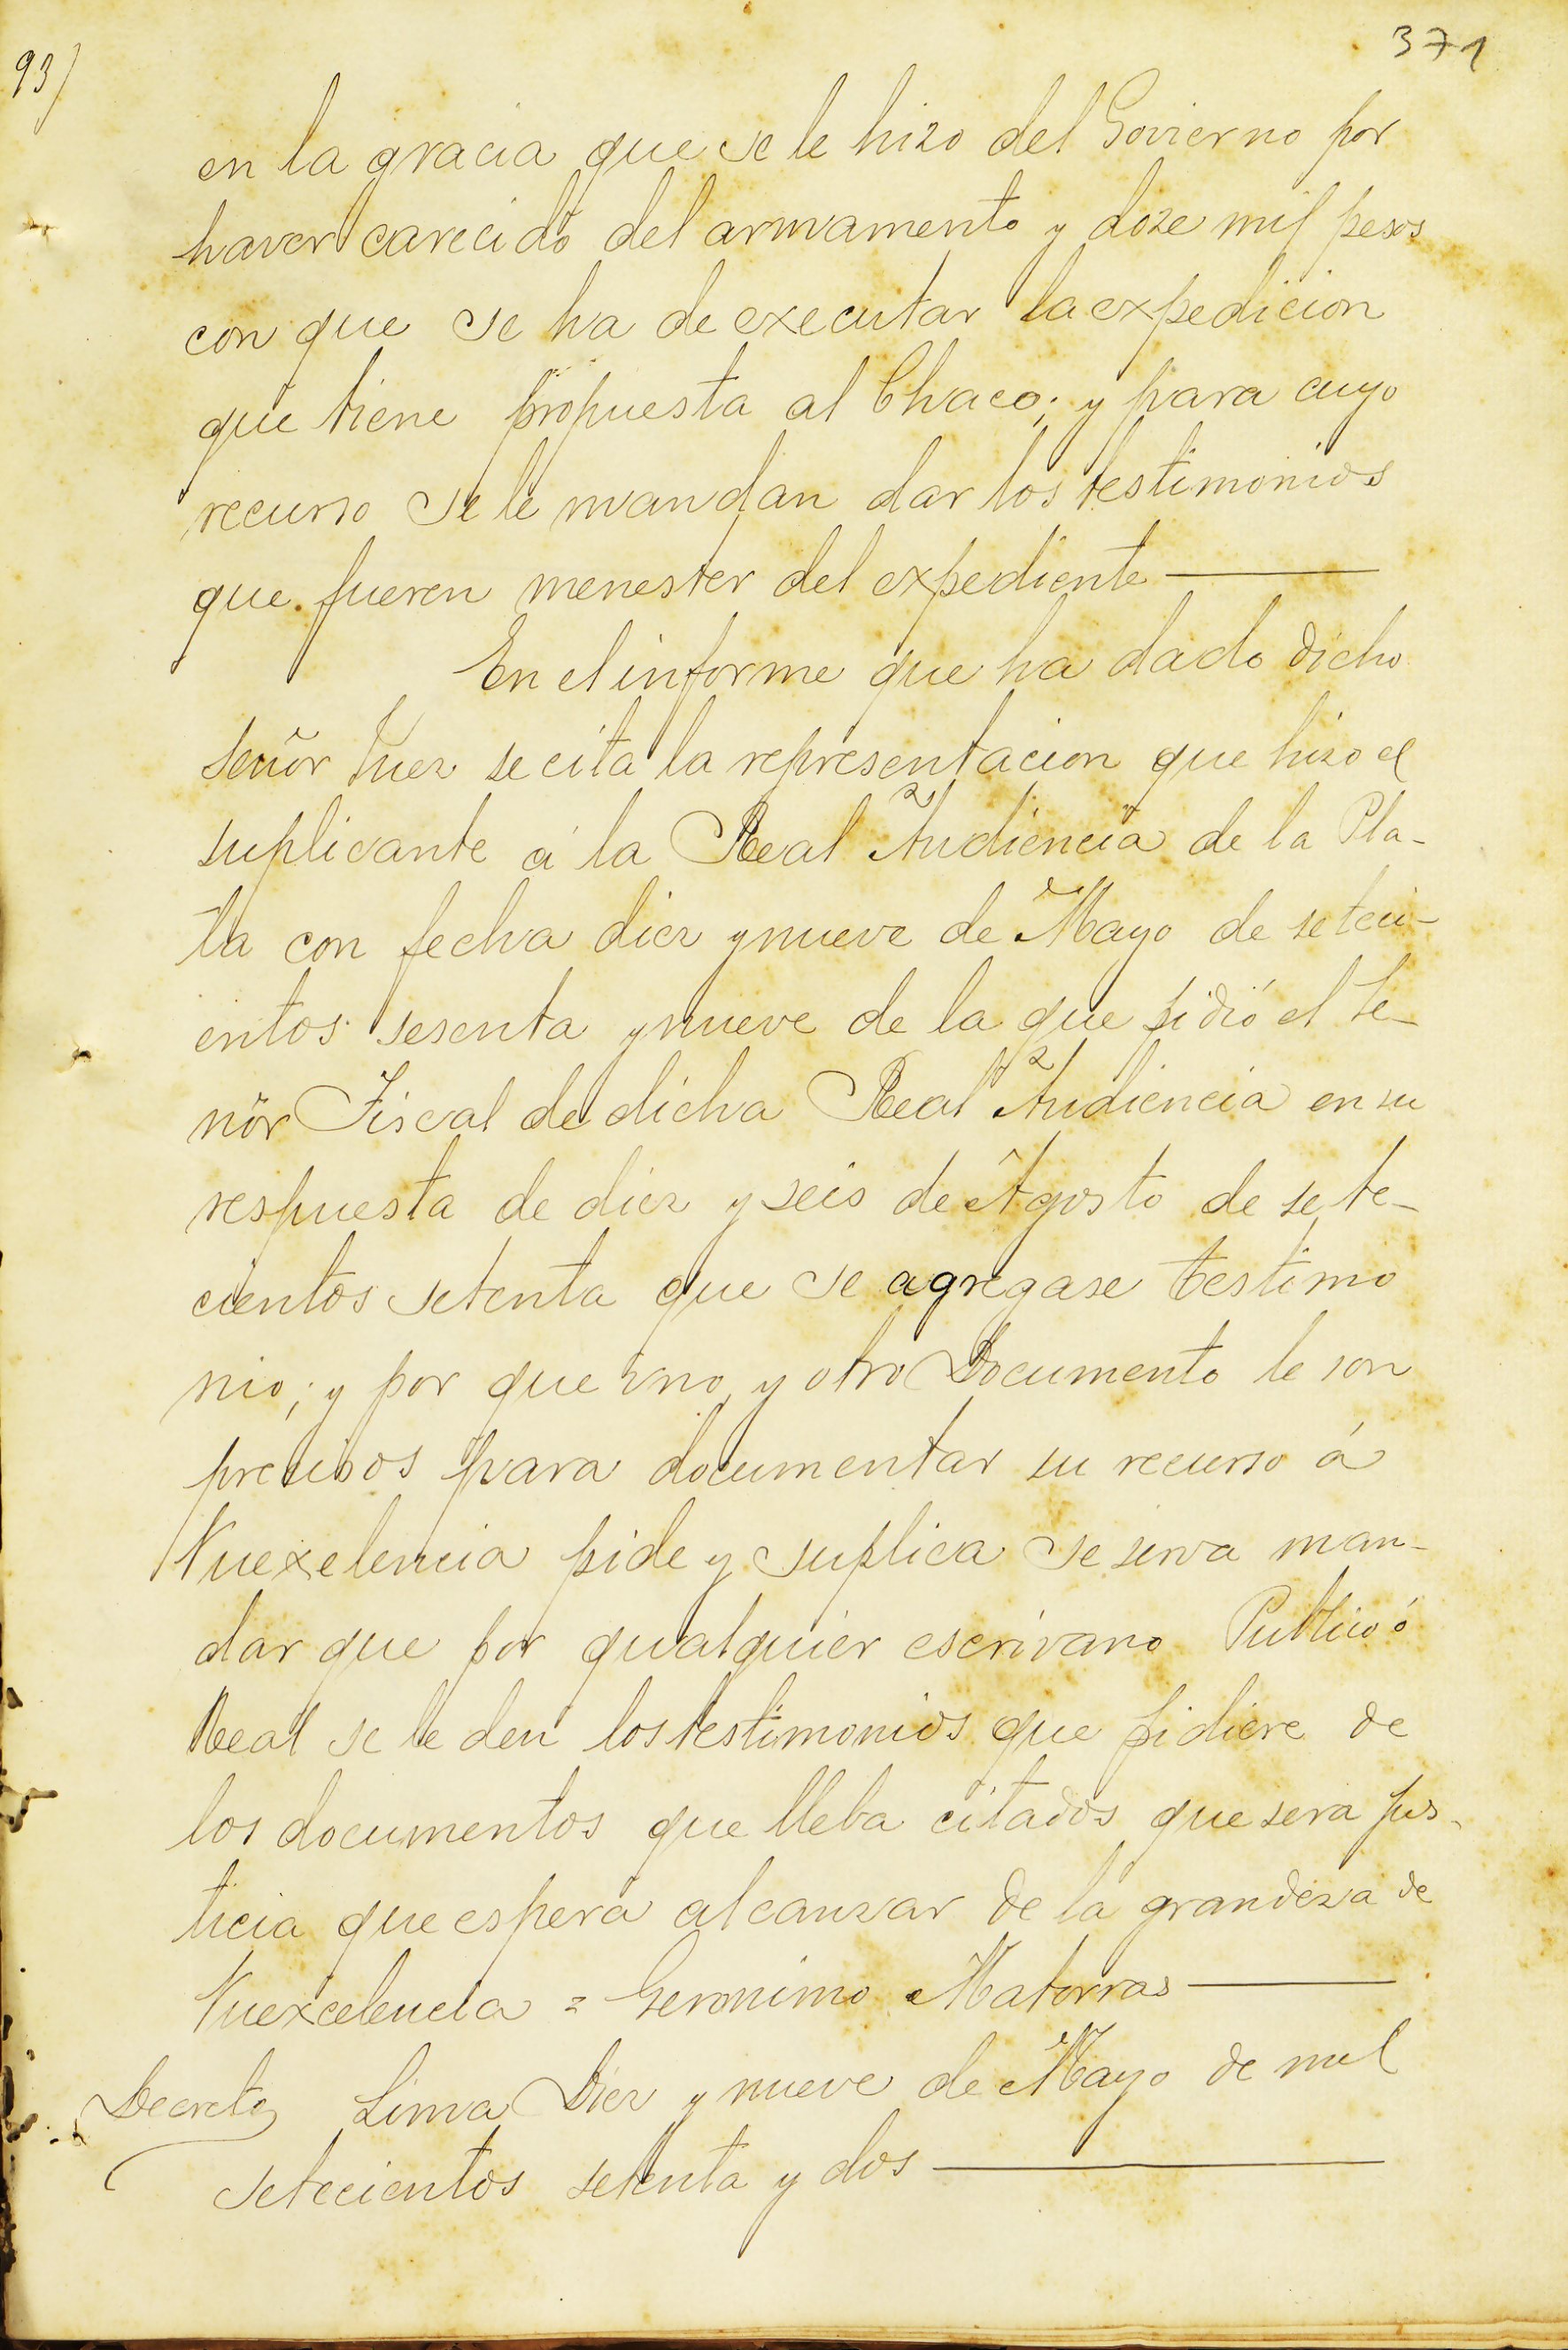 93)
371
en la gracia que se le hizo del Govierno por
haver carecido del armamento y doze mil pesos
con que se ha de executar la expedicion
que tiene propuesta al Chaco; y para cuyo
recurso se le mandan dar los testimonios
que fueren menester del expediente
En el informe que ha dado dicho
señor Juez se cita la representacion que hizo el
suplicante á la Real Audiencia de la Pla-
ta con fecha diez y nueve de Mayo de seteci-
entos sesenta y nueve de la que pidió el Se-
ñor Fiscal de dicha Real Audiencia en su
respuesta de diez y seis de Agosto de sete-
cientos setenta que se agregase testimo
nio; y por que uno y otro Documento le son
precisos para documentar su recurso á
Vuexelencia pide y suplica se sirva man-
dar que por qualquier escrivano Publico ó
Real se le den los testimonios que pidiere de
los documentos que lleba citados que sera jus-
ticia que espera alcanzar de la grandeza de
Vuexcelencia = Geronimo Matorras
Decreto Lima Diez y nueve de Mayo de mil
setecientos setenta y dos